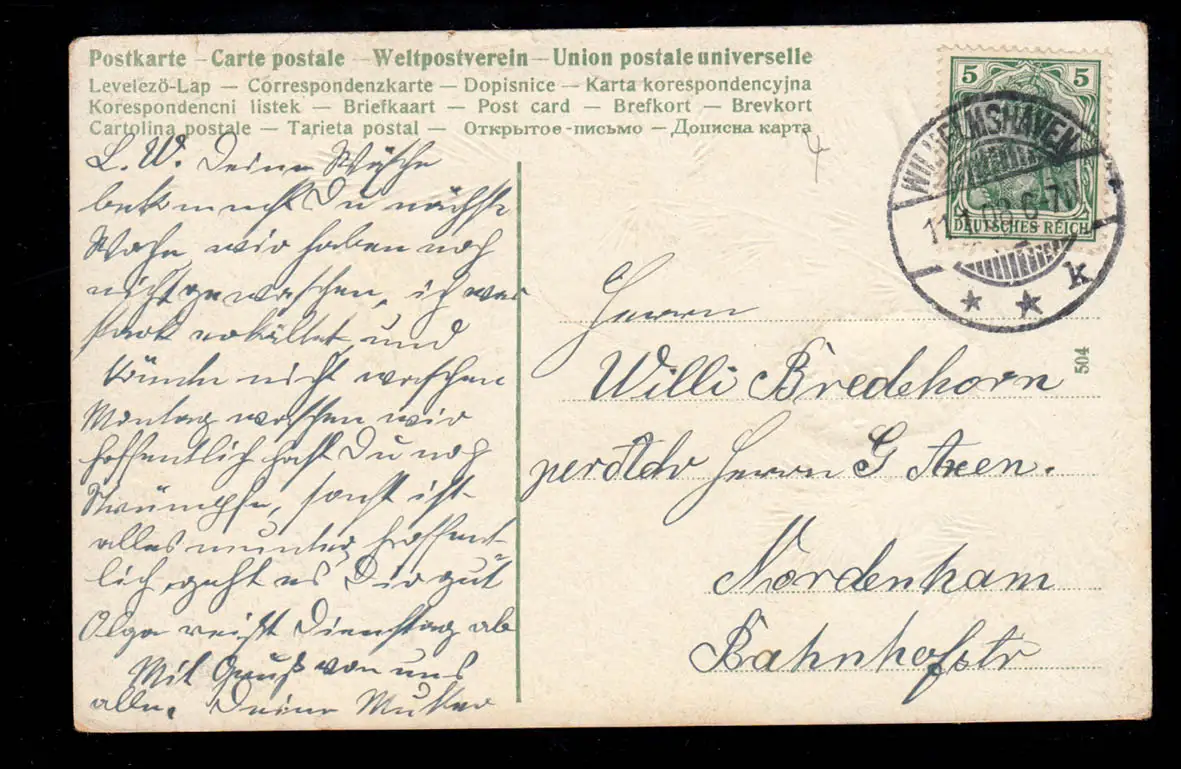 Postkarte – Carte postale – Weltpostverein – Union postale universelle
Levelező-Lap – Correspondenzkarte – Dopisnice – Karta korespondencyjna
Korespondencni listek – Briefkaart – Post card – Brefkort – Brevkort
Cartolina postale – Tarieta postal – Открытое-письмо – Дописна карта
5 5
DEUTSCHES REICH
WILHELMSHAVEN
11.1.08. 6-7N
* * k
L. W. Deine Wäsche
bekommst Du nächste
Woche, wir haben noch
nicht gewaschen, ich war
stark erkältet und
könnte nicht waschen
Montag waschen wir
hoffentlich hast Du noch
Strümpfe, sonst ist
alles munter, hoffent-
lich geht es Dir gut
Olga reist Dienstag ab
Mit Gruß von uns
alle. Deine Mutter
Herrn
Willi Bredehorn
Herrn G
Nordenham
Bahnhofstr
504